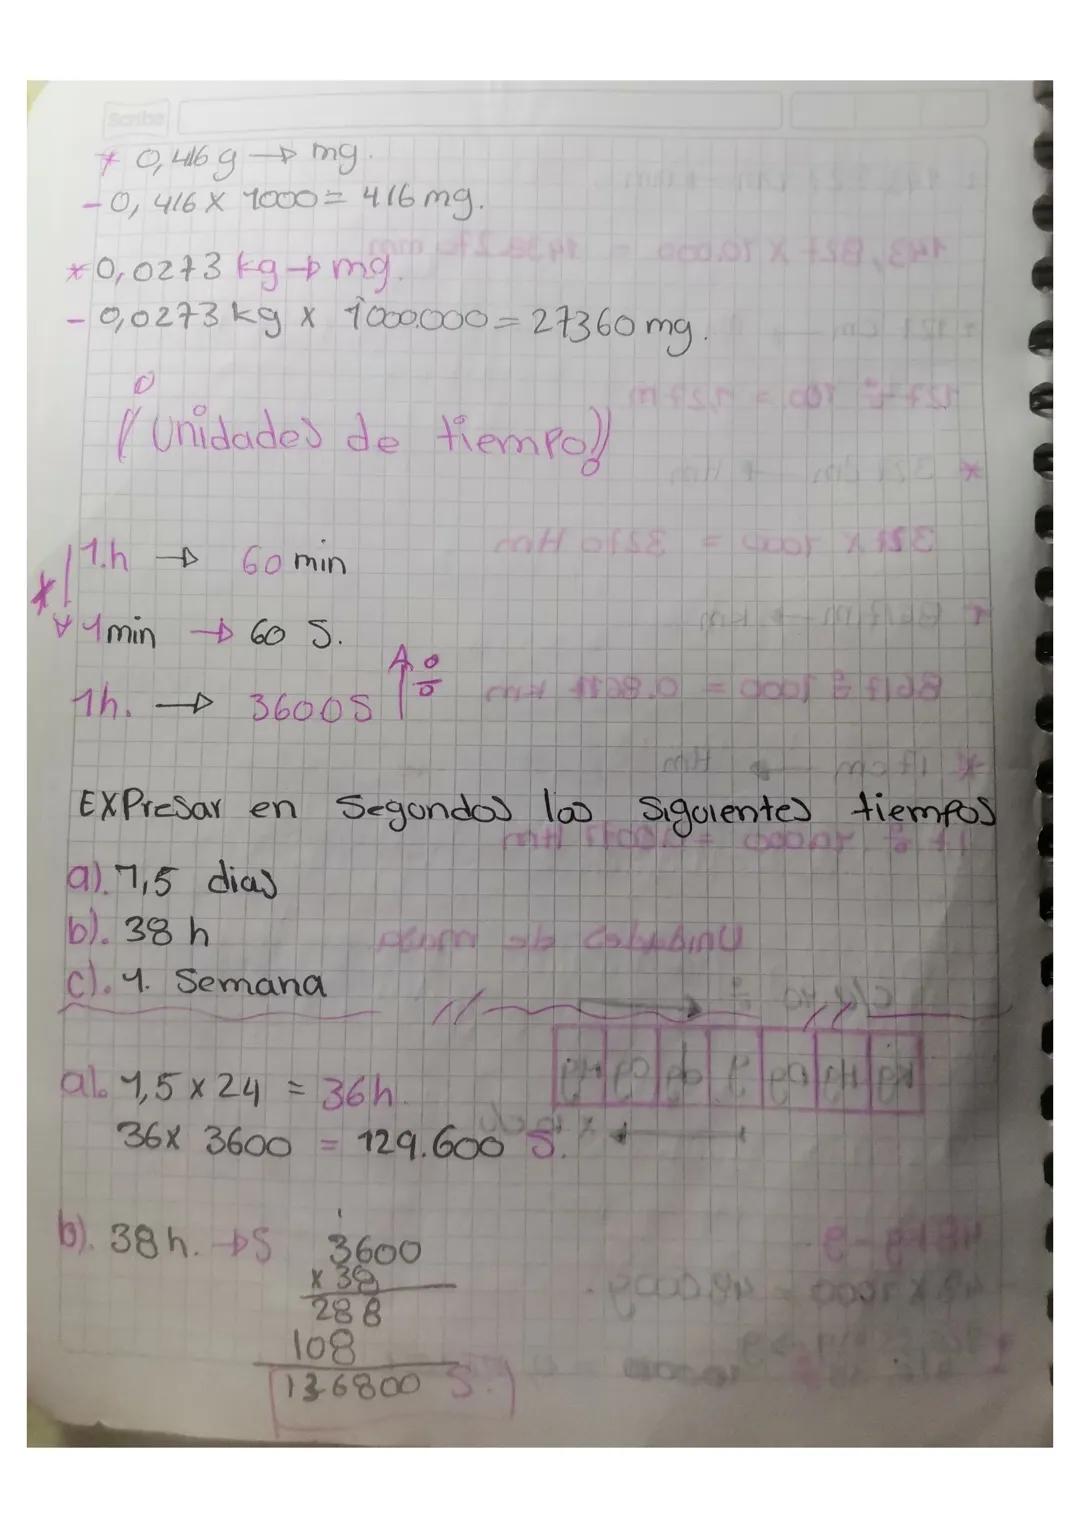 Scribe
* 0,416 g → mg.
- 0,416 X 1000 = 416 mg.
* 0,0273 kg → mg.
- 0,0273 kg x 1000.000 = 27360 mg.
(Unidades de tiempo)
1.h → 60 min
1 min → 60 S.
1h. → 3600 S ÷
EXPresar en Segundos los siguientes tiempos
a). 1,5 dias
b). 38 h
c). 1. Semana
a). 1,5 x 24 = 36h.
36x 3600 = 129.600 S.
b). 38 h. → S
1
3600
x 38
288
108
136800 S.